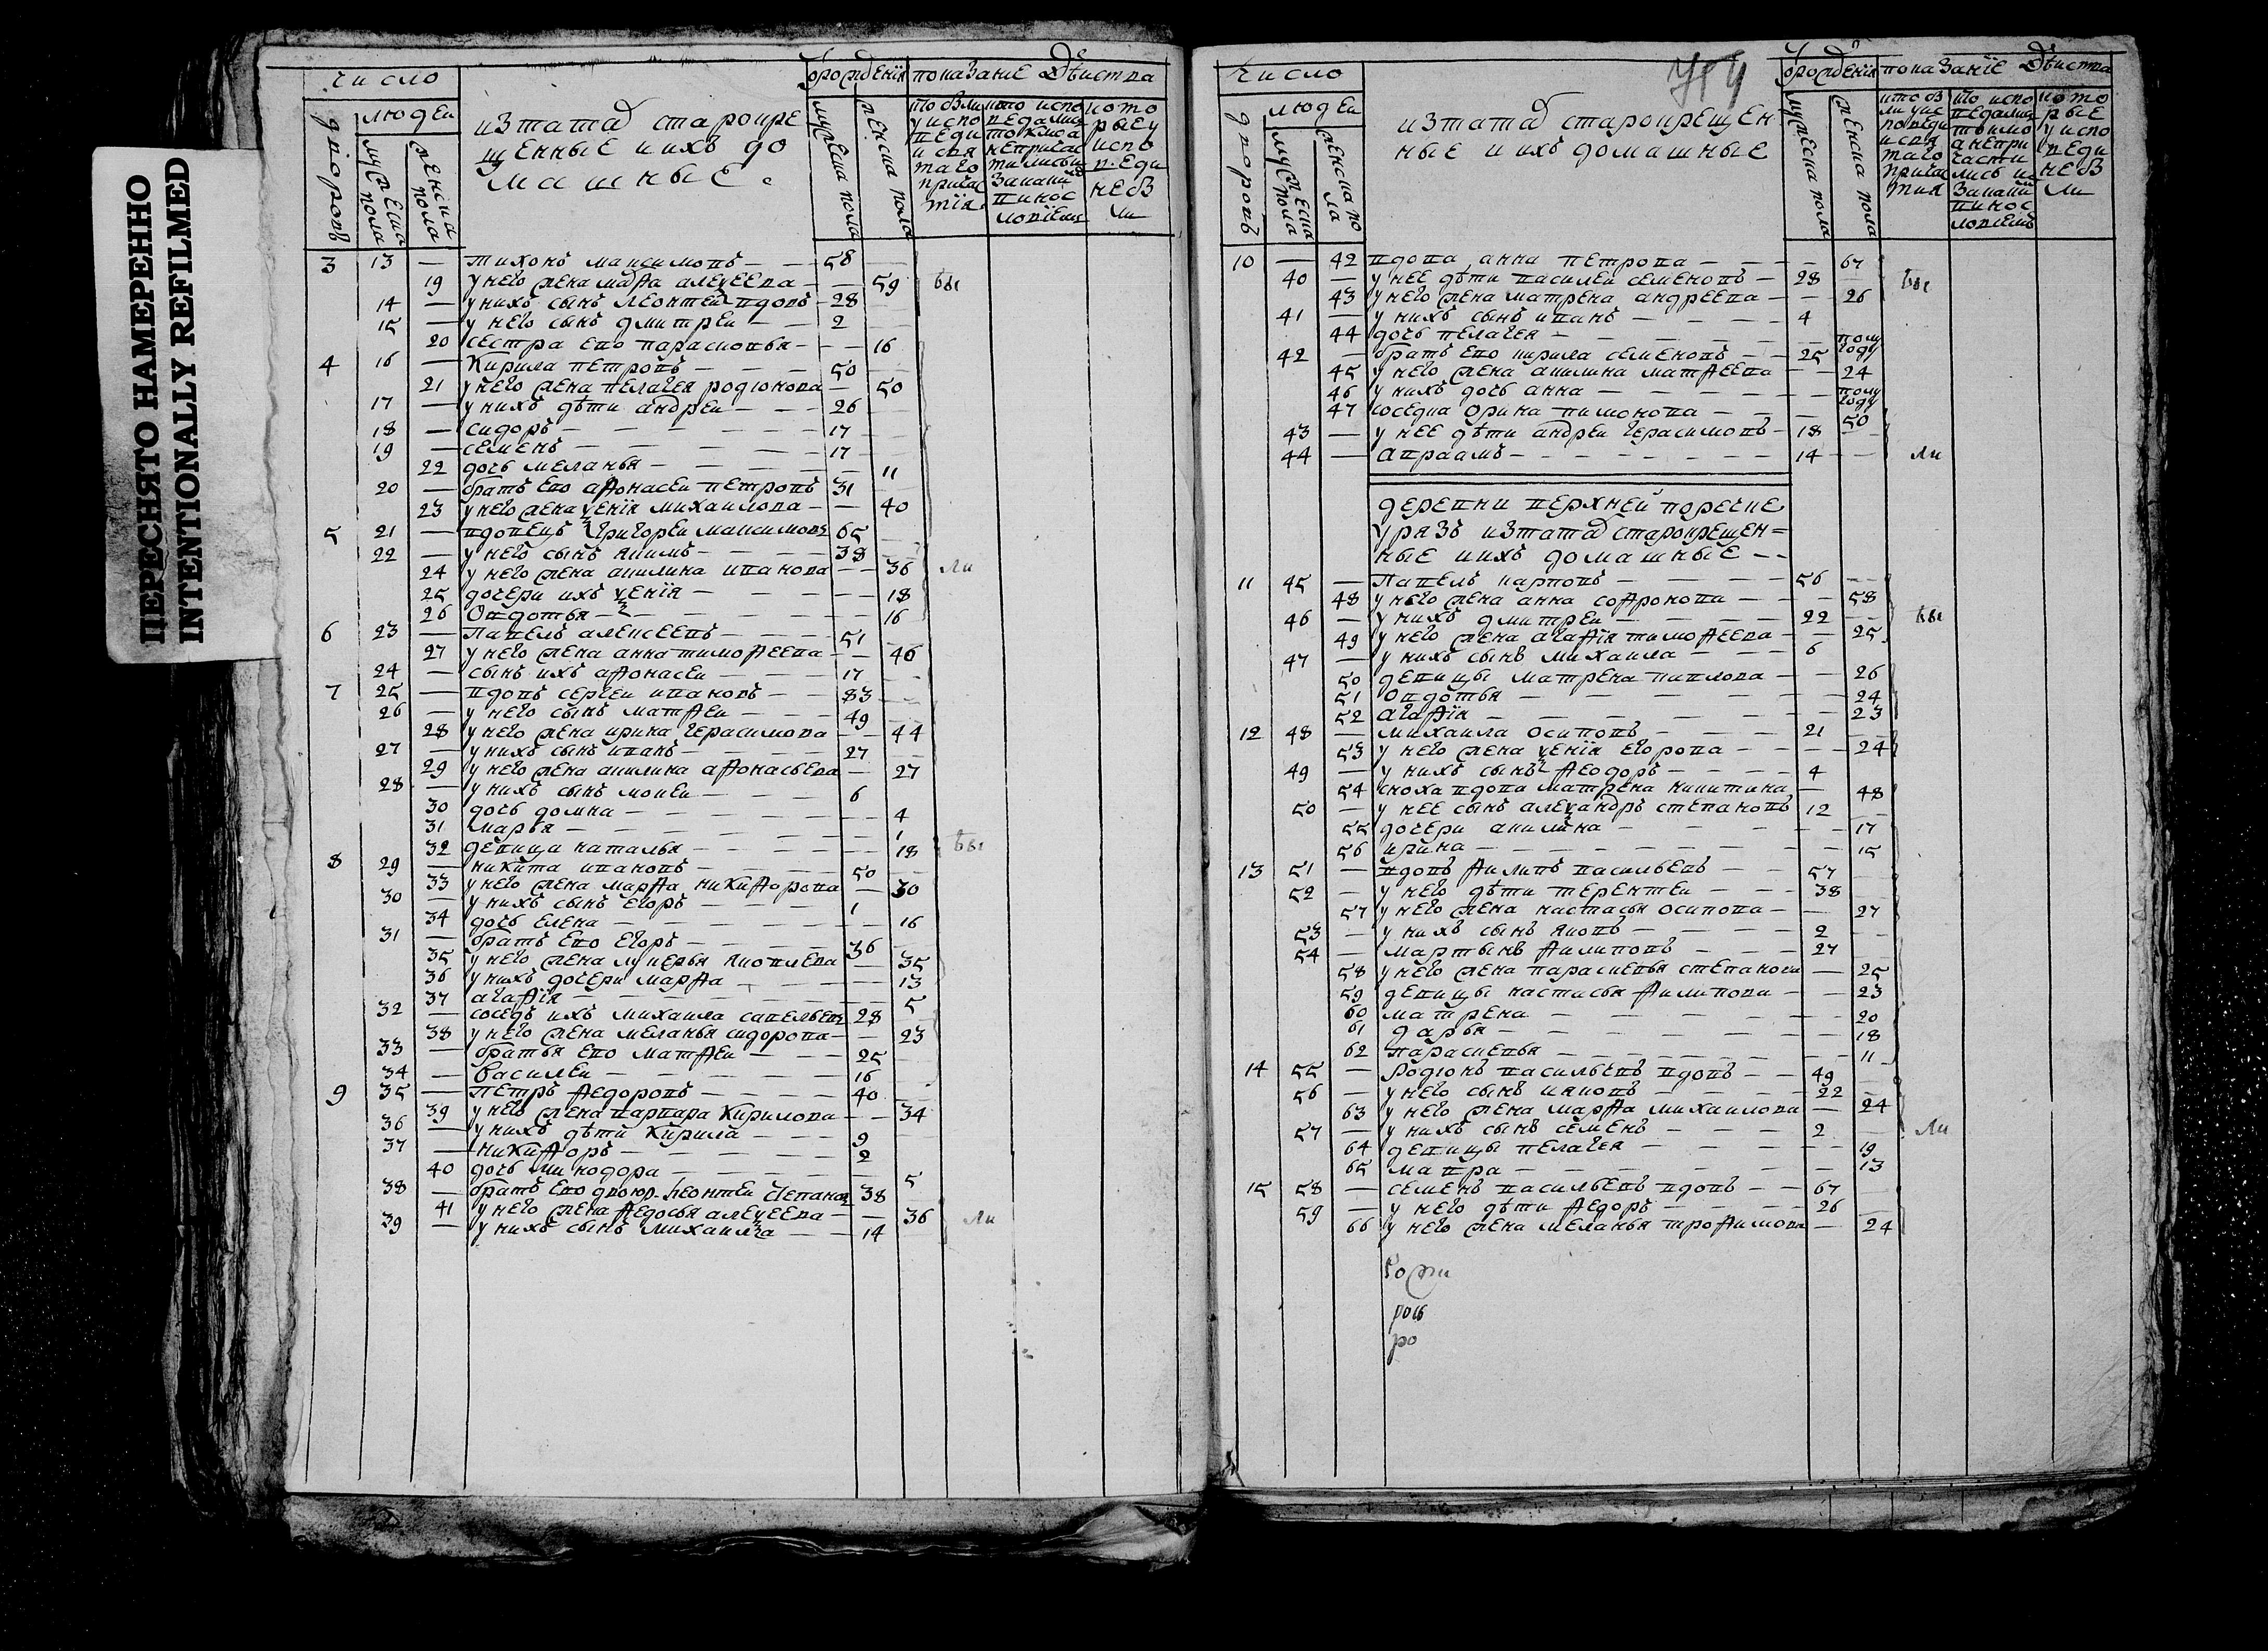 ПЕРЕСНЯТО НАМЕРЕННО
INTENTIONALLY REFILMED
число
людеи
дворовъ
мужеска пола
женска пола
изтатаръ старокре
щенные иихъ до
машные
рожденiя
мужеска пола
женска пола
показанiе дѣиства
3 13 — тихонъ максимовъ — 58
19 у него жена марѳа алеѯеева — 59 бы
14 — у нихъ сынъ леонтеи вдовъ — 28
15 — у него сынъ дмитреи — 2
20 сестра ево парасковья — 16
4 16 — Кирила петровъ — 50
21 у него жена пелагея родiонова — 50
17 — у нихъ дѣти андреи — 26
18 — сидоръ — 17
19 — семенъ — 17
22 дочь меланья — 11
20 — братъ ево аѳонасеи петровъ 31
23 у него жена ѯенiя михаилова — 40
5 21 — вдовецъ григореи максимовъ 65
22 — у него сынъ якимъ — 38
24 у него жена акилина иванова — 36 ли
25 дочери ихъ ѯенiя — 18
26 Овдотья — 16
6 23 — павелъ алексеевъ — 51
27 у него жена анна тимоѳеева — 46
24 — сынъ ихъ аѳонасеи — 17
7 25 — вдовъ сергеи ивановъ — 83
26 — у него сынъ матѳеи — 49
28 у него жена ирина герасимова — 44
27 — у нихъ сынъ иванъ — 27
29 у него жена акилина аѳонасьева — 27
28 — у нихъ сынъ мокеи — 6
30 дочь домна — 4
31 марья — 1
32 девица наталья — 18 бы
8 29 — никита ивановъ — 50
33 у него жена марѳа никиѳорова — 30
30 — у нихъ сынъ егоръ — 1
34 дочь елена — 16
31 — братъ ево егоръ — 36
35 у него жена лукерья яковлева — 35
36 у нихъ дочери марѳа — 13
37 агаѳiя — 5
32 — соседъ ихъ михаила савельевъ 28
38 у него жена меланья сидорова — 23
33 — братья ево матѳеи — 25
34 — василеи — 16
9 35 — петръ ѳедоровъ — 40
39 у него жена варвара Кирилова — 34
36 — у нихъ дѣти Кирила — 9
37 — никиѳоръ — 2
40 дочь минодора — 5
38 — братъ ево двоюр. леонтеи степановъ 38
41 у него жена ѳедосья алеѯеева — 36 ли
39 — у нихъ сынъ михаила — 14
число
людеи
дворовъ
мужеска пола
женска пола
изтатаръ старокрещен
ные иихъ домашные
рожденiя
мужеска пола
женска пола
показанiе дѣиства
10 — 42 вдова анна петрова — 67
40 — у нее дѣти василеи семеновъ — 28 бы
43 у него жена матрена андреева — 26
41 — у нихъ сынъ иванъ — 4
44 дочь пелагея — полу году
42 — братъ ево кирила семеновъ — 25
45 у него жена акилина матѳеева — 24
46 у нихъ дочь анна — полу году
47 соседка орина пимонова — 50
43 — у нее дѣти андреи герасимовъ — 18
44 — авраамъ — 14 ли
деревни верхней
изтатаръ старокрещен=
ные иихъ домашные —
11 45 — павелъ карповъ — 56
48 у него жена анна соѳронова — 58
46 — у нихъ дмитреи — 22 бы
49 у него жена агаѳiя тимоѳеева — 25
47 — у нихъ сынъ михаила — 6
50 девицы матрена павлова — 26
51 овдотья — 24
52 агаѳiя — 23
12 48 — михаила осиповъ — 21
53 у него жена ѯенiя егорова — 24
49 — у нихъ сынъ ѳеодоръ — 4
54 сноха вдова матрена никитина — 48
50 — у нее сынъ алеѯандръ степановъ 12
55 дочери акилина — 17
56 ирина — 15
13 51 — вдовъ ѳилипъ васильевъ — 57
52 — у него дѣти терентеи — 38
57 у него жена настасья осипова — 27
53 — у нихъ сынъ яковъ — 2
54 — мартынъ ѳилиповъ — 27
58 у него жена параскевья степанова — 25
59 девицы настасья ѳилипова — 23
60 матрена — 20
61 дарья — 18
62 параскевья — 11
14 55 — Родiонъ васильевъ вдовъ — 49
56 — у него сынъ — 22
63 у него жена марѳа михаилова — 24
57 — у нихъ сынъ семенъ — 2 ли
64 девицы пелагея — 19
65 мавра — 13
15 58 — семенъ васильевъ вдовъ — 67
59 — у него дѣти ѳедоръ — 26
66 у него жена меланья троѳимова — 24
ро